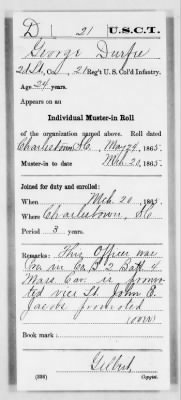 D | 21 | U.S.C.T.
George Durfee
2d Lt., Co. , 21 Reg't U. S. Col'd Infantry.
Age 24 years.
Appears on an
Individual Muster-in Roll
of the organization named above. Roll dated
Charlestown S.C., May 29, 1865.
Muster-in to date Mch 20, 1865.
Joined for duty and enrolled:
When Mch 20, 1865.
Where Charlestown, S.C.
Period 3 years.
Remarks: This Officer was
in Co. 2 Batt 4
Mass Cav. is promo
ted vice Lt. John E.
Jacobs promoted
(over)
Book mark:
Gilbert
(336) Copyist.